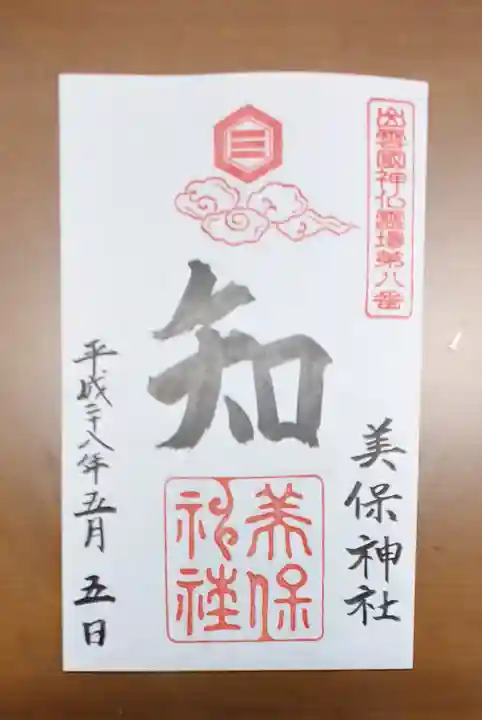 出雲國神仏霊場第八番
美保神社
三
知
美保
神社
平成二十八年五月五日